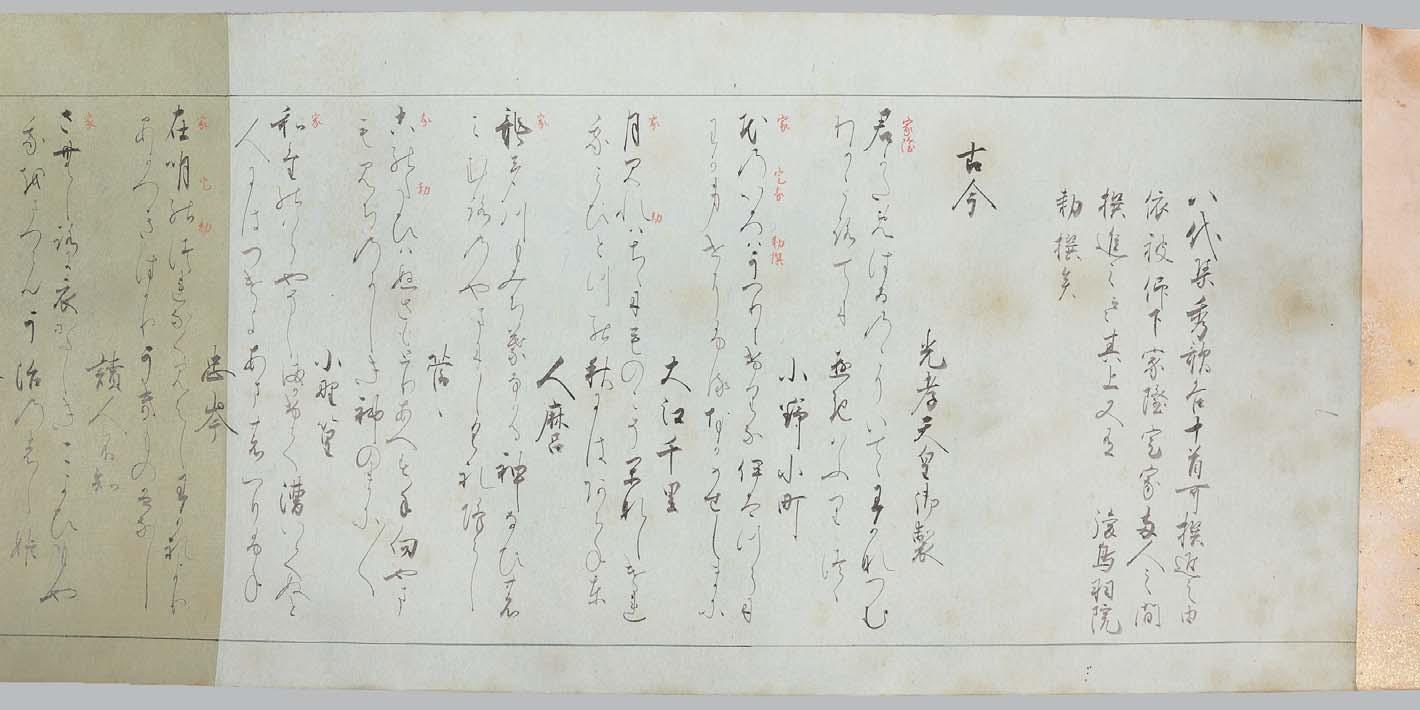 八代集秀歌各十首可撰進之由
依被仰下家隆定家両人之間
撰進之き其上又有 後鳥羽院
勅撰矣
古今
光孝天皇御製
家隆
君かためはるのゝにいてゝわかなつむ
わかころもてに遊きはふりつゝ
小野小町
家 定家 勅撰
花のいろはうつりにけりないたつらに
わか身よにふるなかめせしまに
大江千里
家 勅
月みれはちゝにものこそかなしけれ
我みひとつの秋にはあらねと
人麻呂
家
龍田川もみち葉なかる神なひの
みむろのやまにしくれふるらし
菅〻
家 勅
このたひはぬさもとりあへす手向やま
もみちのにしき神のまに〳〵
小野篁
家
和たのはらやそしまかけて漕いてぬと
人にはつけよあまのつりふね
忠岑
家 定 勅
在明のつれなくみえしわかれより
あかつきはかりうきものはなし
讀人不知
家
さむしろに衣かたしきこよひもや
我をまつらんう治のはし姫